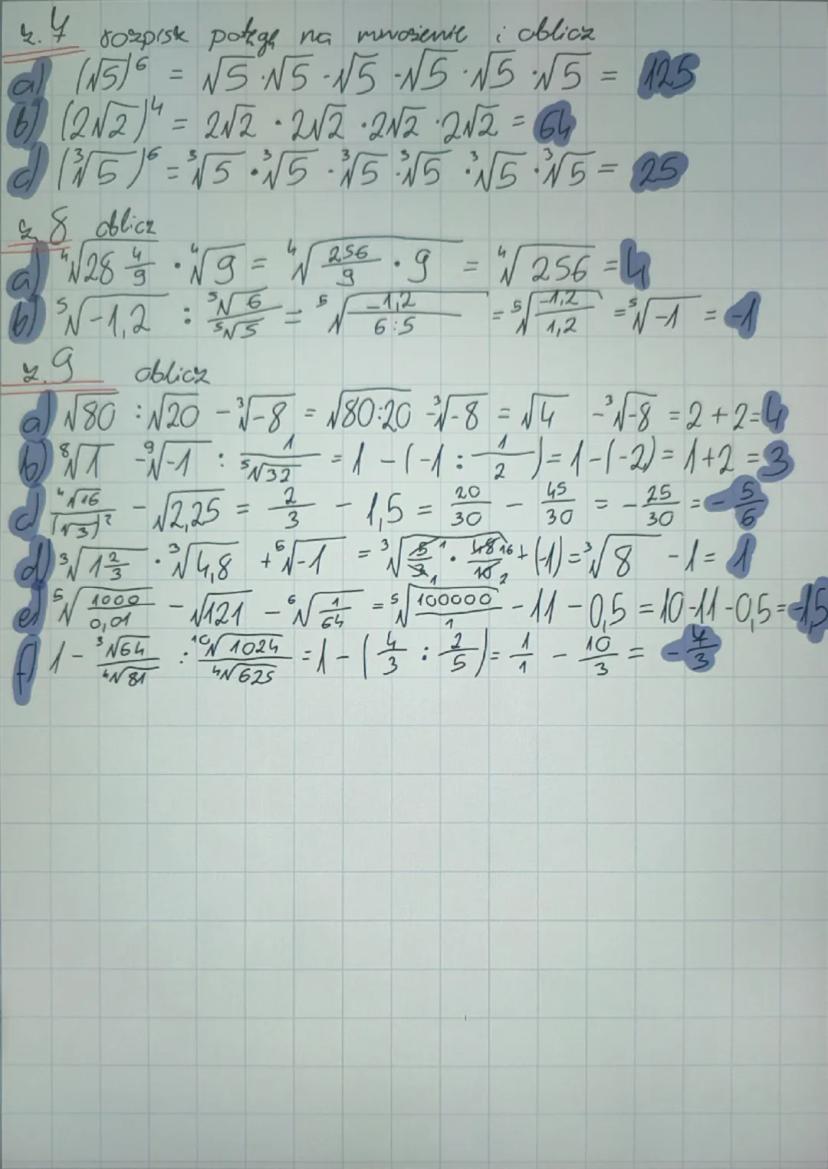 z.7 rozpisz potęgę na mnożenie i oblicz
a) (√5)⁶ = √5 · √5 · √5 · √5 · √5 · √5 = 125
b) (2√2)⁴ = 2√2 · 2√2 · 2√2 · 2√2 = 64
c) (³√5)⁶ = ³√5 · ³√5 · ³√5 · ³√5 · ³√5 · ³√5 = 25
z.8 oblicz
a) ⁴√(28 4/9) · ⁴√9 = ⁴√(256/9 · 9) = ⁴√256 = 4
b) ⁵√-1,2 : ⁵√6/⁵√5 = ⁵√(-1,2/6:5) = ⁵√(-1,2/1,2) = ⁵√-1 = -1
z.9 oblicz
a) √80 : √20 - ³√-8 = √80:20 - ³√-8 = √4 - ³√-8 = 2 + 2 = 4
b) ⁸√1 - ⁹√-1 : 1/⁵√32 = 1 - (-1 : 1/2) = 1 - (-2) = 1 + 2 = 3
c) ⁴√16/(√3)² - √2,25 = 2/3 - 1,5 = 20/30 - 45/30 = -25/30 = -5/6
d) ³√(1 2/3) · ³√4,8 + ⁵√-1 = ³√(5/3 · 48/10) + (-1) = ³√8 - 1 = 1
e) ⁵√(1000/0,01) - √121 - ⁶√(1/64) = ⁵√(100000/1) - 11 - 0,5 = 10 - 11 - 0,5 = -1,5
f) 1 - ³√64/⁴√81 : ¹⁰√1024/⁴√625 = 1 - (4/3 : 2/5) = 1/1 - 10/3 = -7/3